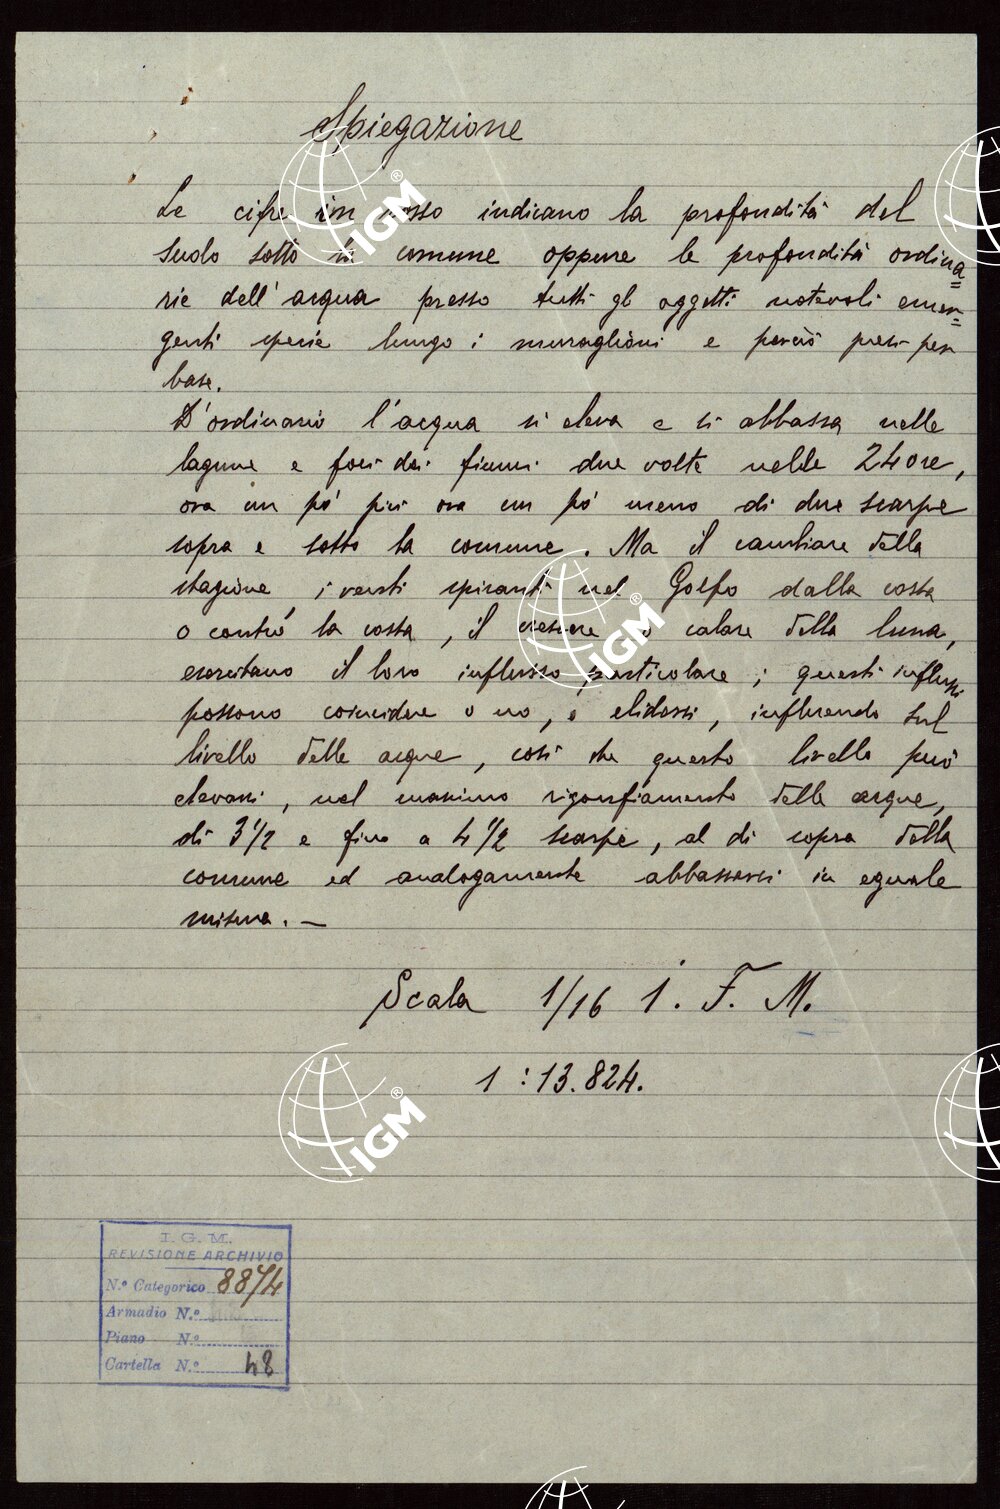 Spiegazione
Le cifre in rosso indicano la profondità del
suolo sotto la comune oppure le profondità ordina=
rie dell'acqua presso tutti gli oggetti notevoli emer=
genti specie lungo i muraglioni e perciò presi per
base.
D'ordinario l'acqua si eleva e si abbassa nelle
lagune e foci dei fiumi due volte nelle 24 ore,
ora un pó più ora un pó meno di due scarpe
sopra e sotto la comune. Ma il cambiare della
stagione, i venti spiranti nel Golfo dalla costa
o contro la costa, il crescere o calare della luna,
esercitano il loro influsso particolare; questi influssi
possono coincidere o no, o elidersi, influendo sul
livello delle acque, così che questo livello può
elevarsi, nel massimo rigonfiamento delle acque,
di 3 1/2 e fino a 4 1/2 scarpe, al di sopra della
comune ed analogamente abbassarsi in eguale
misura. —
Scala 1/16 i. F. M.
1 : 13.824.
I. G. M.
REVISIONE ARCHIVIO
N.° Categorico 8874
Armadio N.°
Piano N.°
Cartella N.° 48
IGM®
IGM®
IGM®